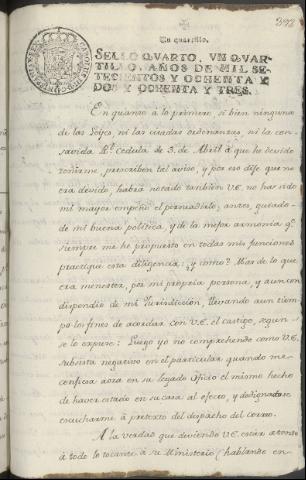 392
Un quartillo.
SELLO QVARTO, VN QVAR-
TILLO, AÑOS DE MIL SE-
TECIENTOS Y OCHENTA Y
DOS Y OCHENTA Y TRES.
En quanto a lo primero, si bien ninguna
de las Leyes, ni las ciudas ordenanzas, ni la con-
savida Rl. Cedula de 3. de Abril á que he devido
ceñirme, prescriben tal aviso, y por eso dije que no
era devido, habrá notado también V.E. no has sido
mi mayor empeño el persuadirlo; antes, guiado
de mi buena politica, y de la mejor armonia qe.
siempre me he propuesto en todas mis funciones
practiqué esta diligencia; y como? Mas de lo que
era menester, por mi propria persona, y aun con
dispendio de mi Jurisdiccion, llevando aun tiem-
po los fines de acordar con V.E. el castigo, segun
se lo expuse: Luego yo no comprehendo como V.E.
subsista negativo en el particular quando me
confiesa aora en su legado Oficio el mismo hecho
de haver estado en su casa al efecto, y dedignadose
escucharme á pretexto del despacho del correo.
A la verdad que deviendo V.E. estar atento
á todo lo tocante á su Ministerio (hablando en